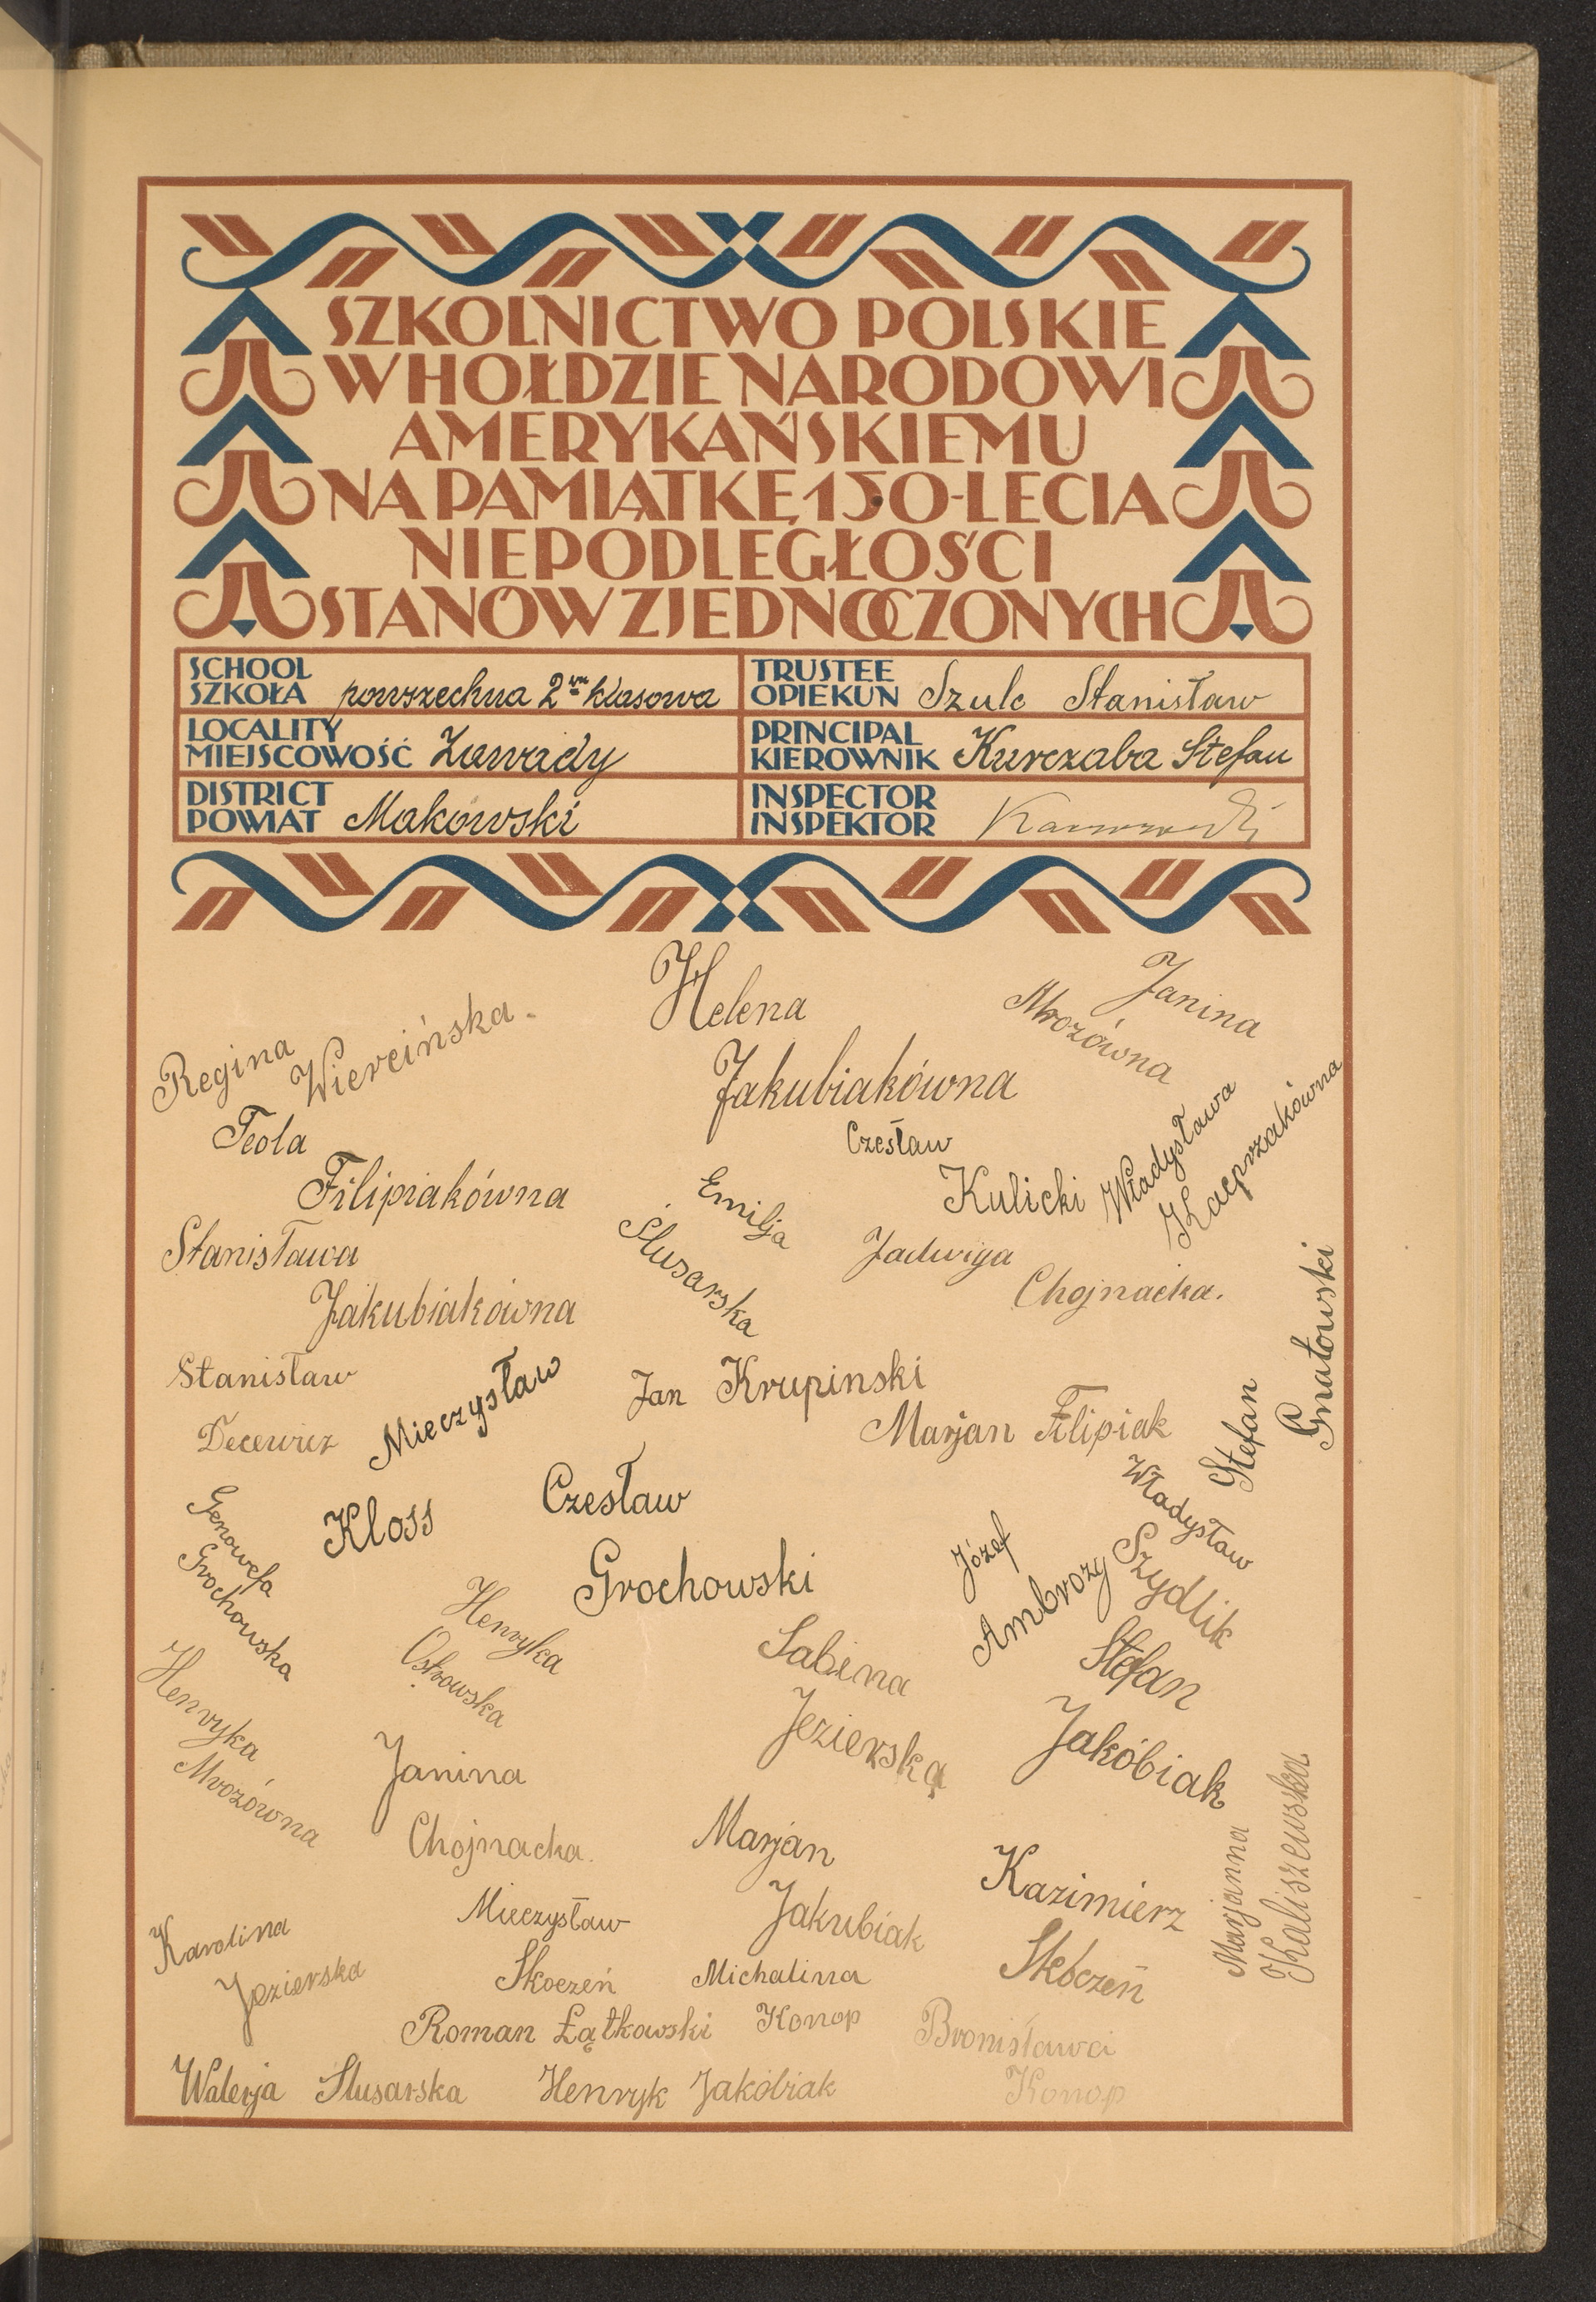 SZKOLNICTWO POLSKIE
W HOŁDZIE NARODOWI
AMERYKAŃSKIEMU
NA PAMIĄTKĘ 150-LECIA
NIEPODLEGŁOŚCI
STANÓW ZJEDNOCZONYCH
SCHOOL
SZKOŁA powszechna 2wu klasowa
TRUSTEE
OPIEKUN Szulc Stanisław
LOCALITY
MIEJSCOWOŚĆ Zawady
PRINCIPAL
KIEROWNIK Kurczaba Stefan
DISTRICT
POWIAT Makowski
INSPECTOR
INSPEKTOR
Regina
Wiercińska.
Helena
Jakubiakówna
Janina
Mrozówna
Teola
Filipiakówna
Czesław
Kulicki
Władysława
Kacprzakówna
Stanisława
Jakubiakówna
Emilja
Ślusarska
Jadwiga
Chojnacka.
Stefan
Gnatowski
Stanisław
Decewicz
Mieczysław
Kloss
Jan Krupinski
Marjan Filipiak
Czesław
Grochowski
Władysław
Szydlik
Genowefa
Grochowska
Józef
Ambroży
Henryka
Ostrowska
Sabina
Jezierska
Stefan
Jakóbiak
Henryka
Mrozówna
Janina
Chojnacka.
Marjan
Jakubiak
Kazimierz
Skoczeń
Marjanna
Kaliszewska
Karolina
Jezierska
Mieczysław
Skoczeń
Michalina
Konop
Roman Łątkowski
Bronisława
Konop
Walerja Slusarska
Henryk Jakóbiak